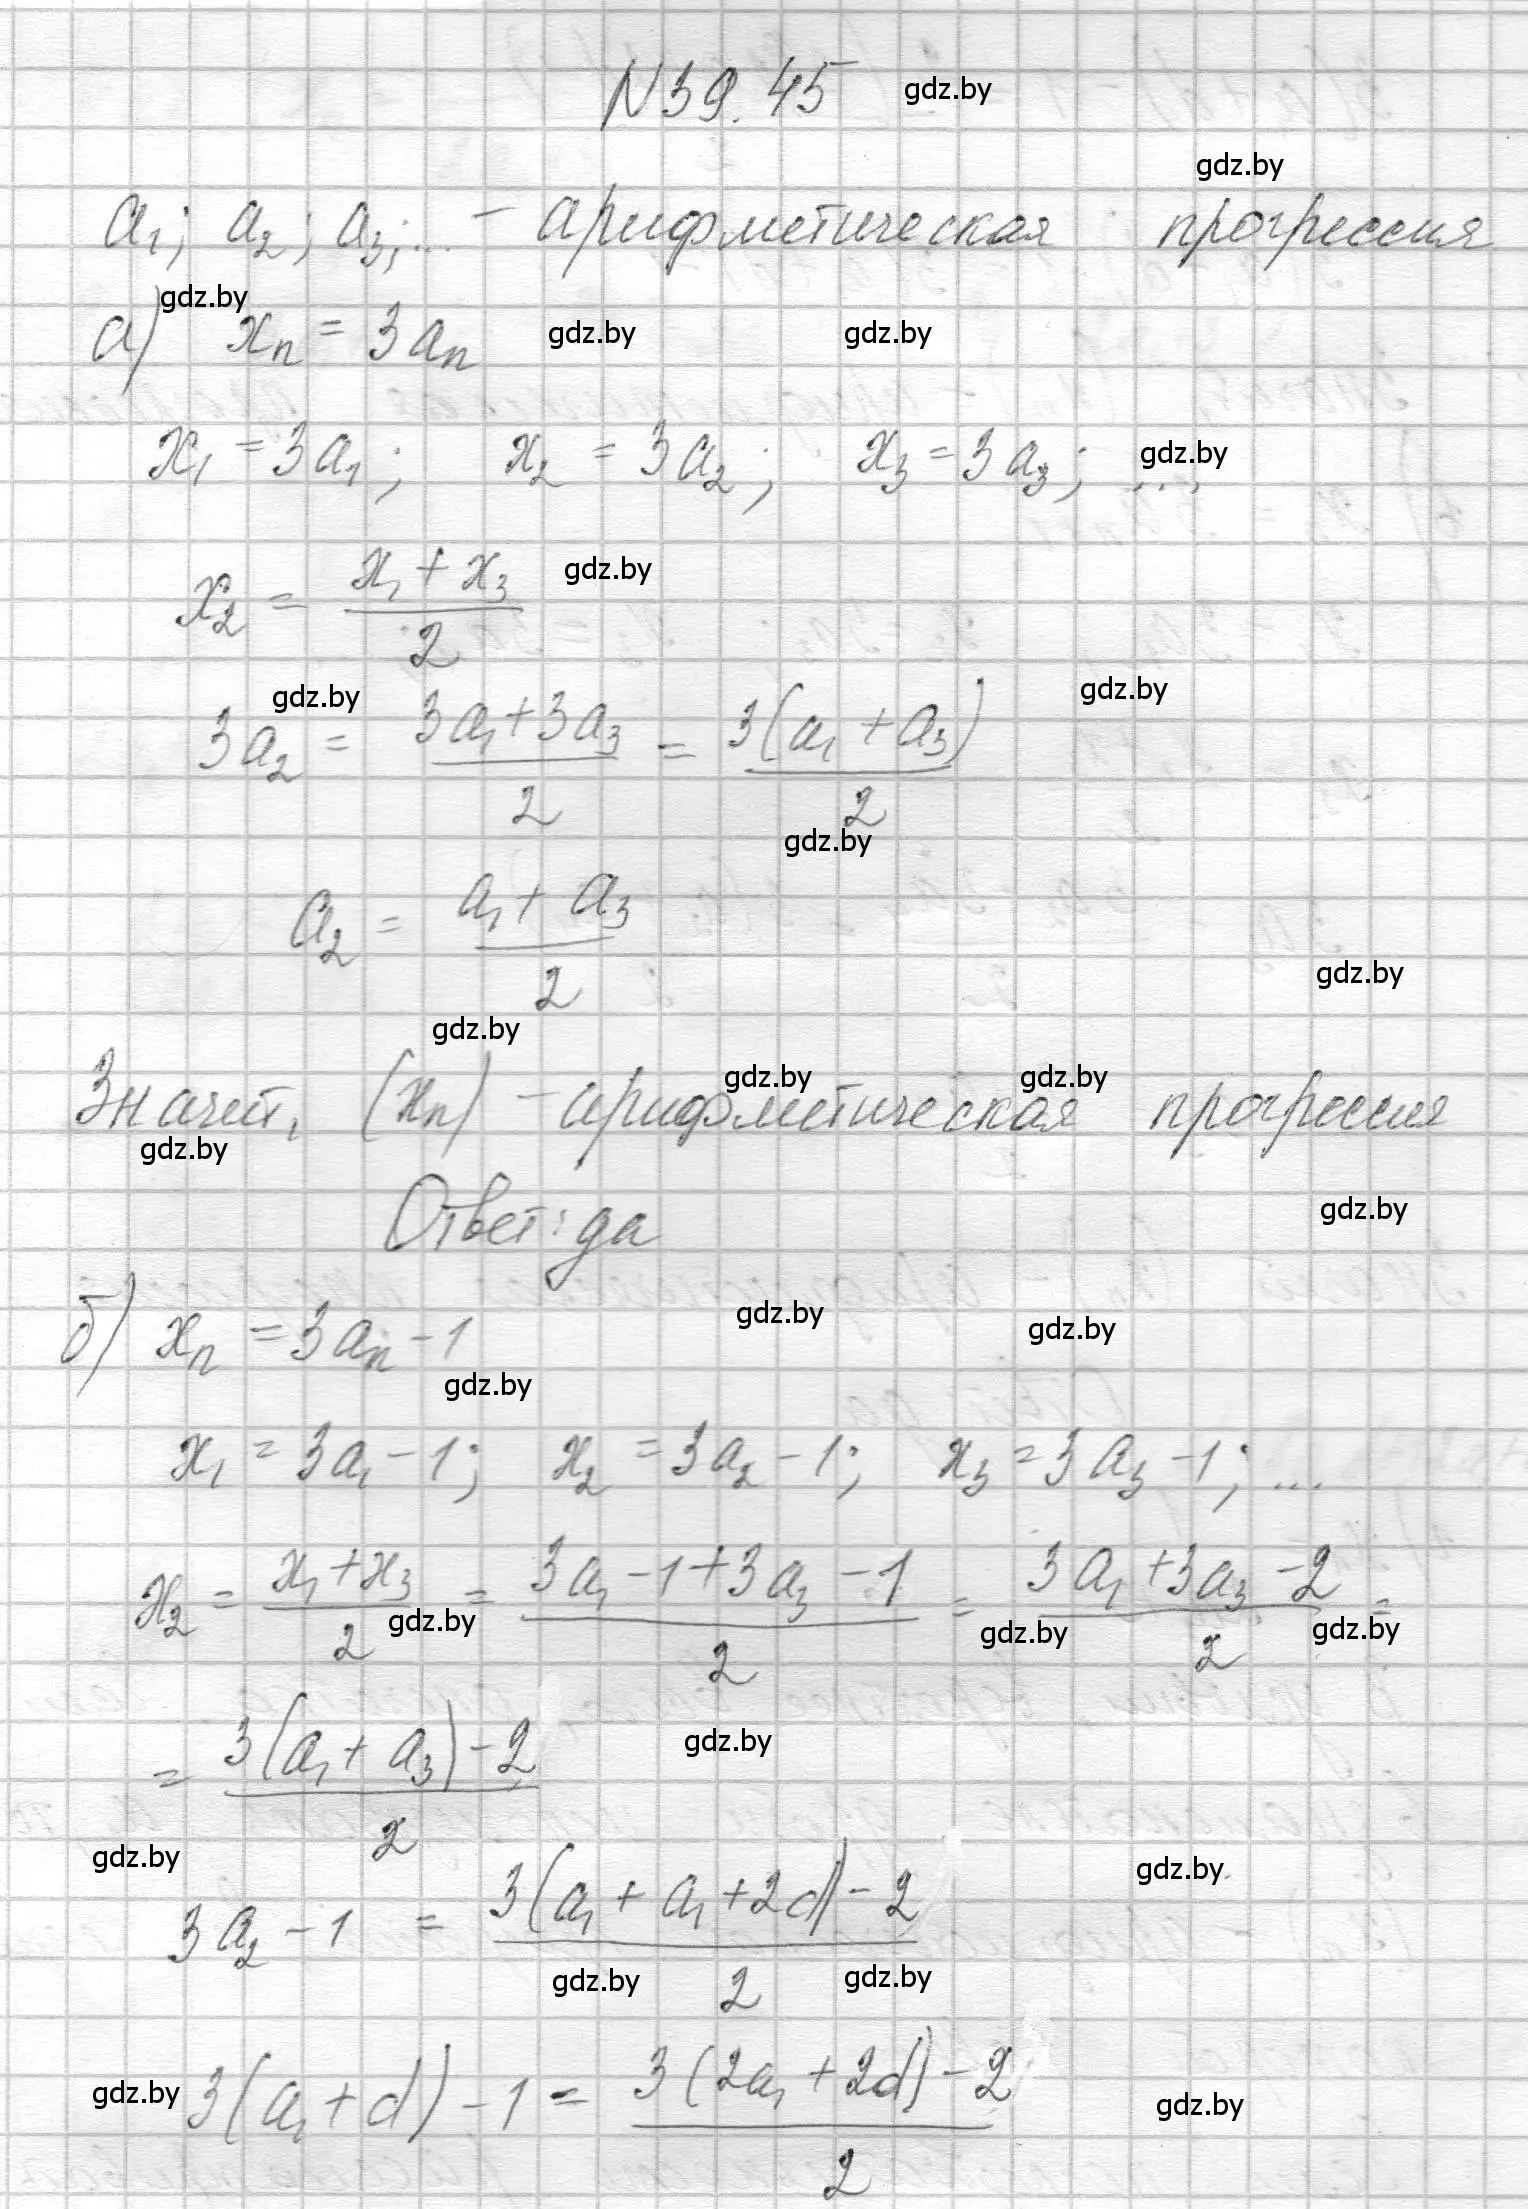 N39.45 gdz.by
gdz.by
a₁; a₂; a₃;... – арифметическая прогрессия
gdz.by
а) xₙ = 3aₙ gdz.by gdz.by
x₁ = 3a₁; x₂ = 3a₂; x₃ = 3a₃; ...; gdz.by
x₂ = (x₁ + x₃)/2 gdz.by
gdz.by gdz.by
3a₂ = (3a₁+3a₃)/2 = 3(a₁ + a₃)/2
gdz.by
a₂ = (a₁ + a₃)/2
gdz.by
gdz.by
gdz.by gdz.by
Значит, (xₙ) – арифметическая прогрессия
gdz.by
gdz.by
Ответ: да
gdz.by gdz.by
б) xₙ = 3aₙ - 1
gdz.by
x₁ = 3a₁ - 1; x₂ = 3a₂ - 1; x₃ = 3a₃ - 1; ...
x₂ = (x₁ + x₃)/2 = (3a₁ - 1 + 3a₃ - 1)/2 = (3a₁ + 3a₃ - 2)/2 =
gdz.by gdz.by gdz.by
= (3(a₁ + a₃) - 2)/2 gdz.by
gdz.by gdz.by
3a₂ - 1 = (3(a₁ + a₁ + 2d) - 2)/2
gdz.by gdz.by
gdz.by 3(a₁ + d) - 1 = (3(2a₁ + 2d) - 2)/2 gdz.by